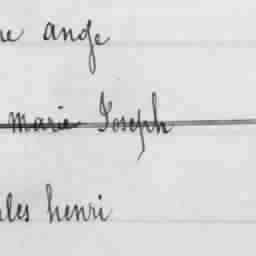 ne ange
marie Joseph
les henri